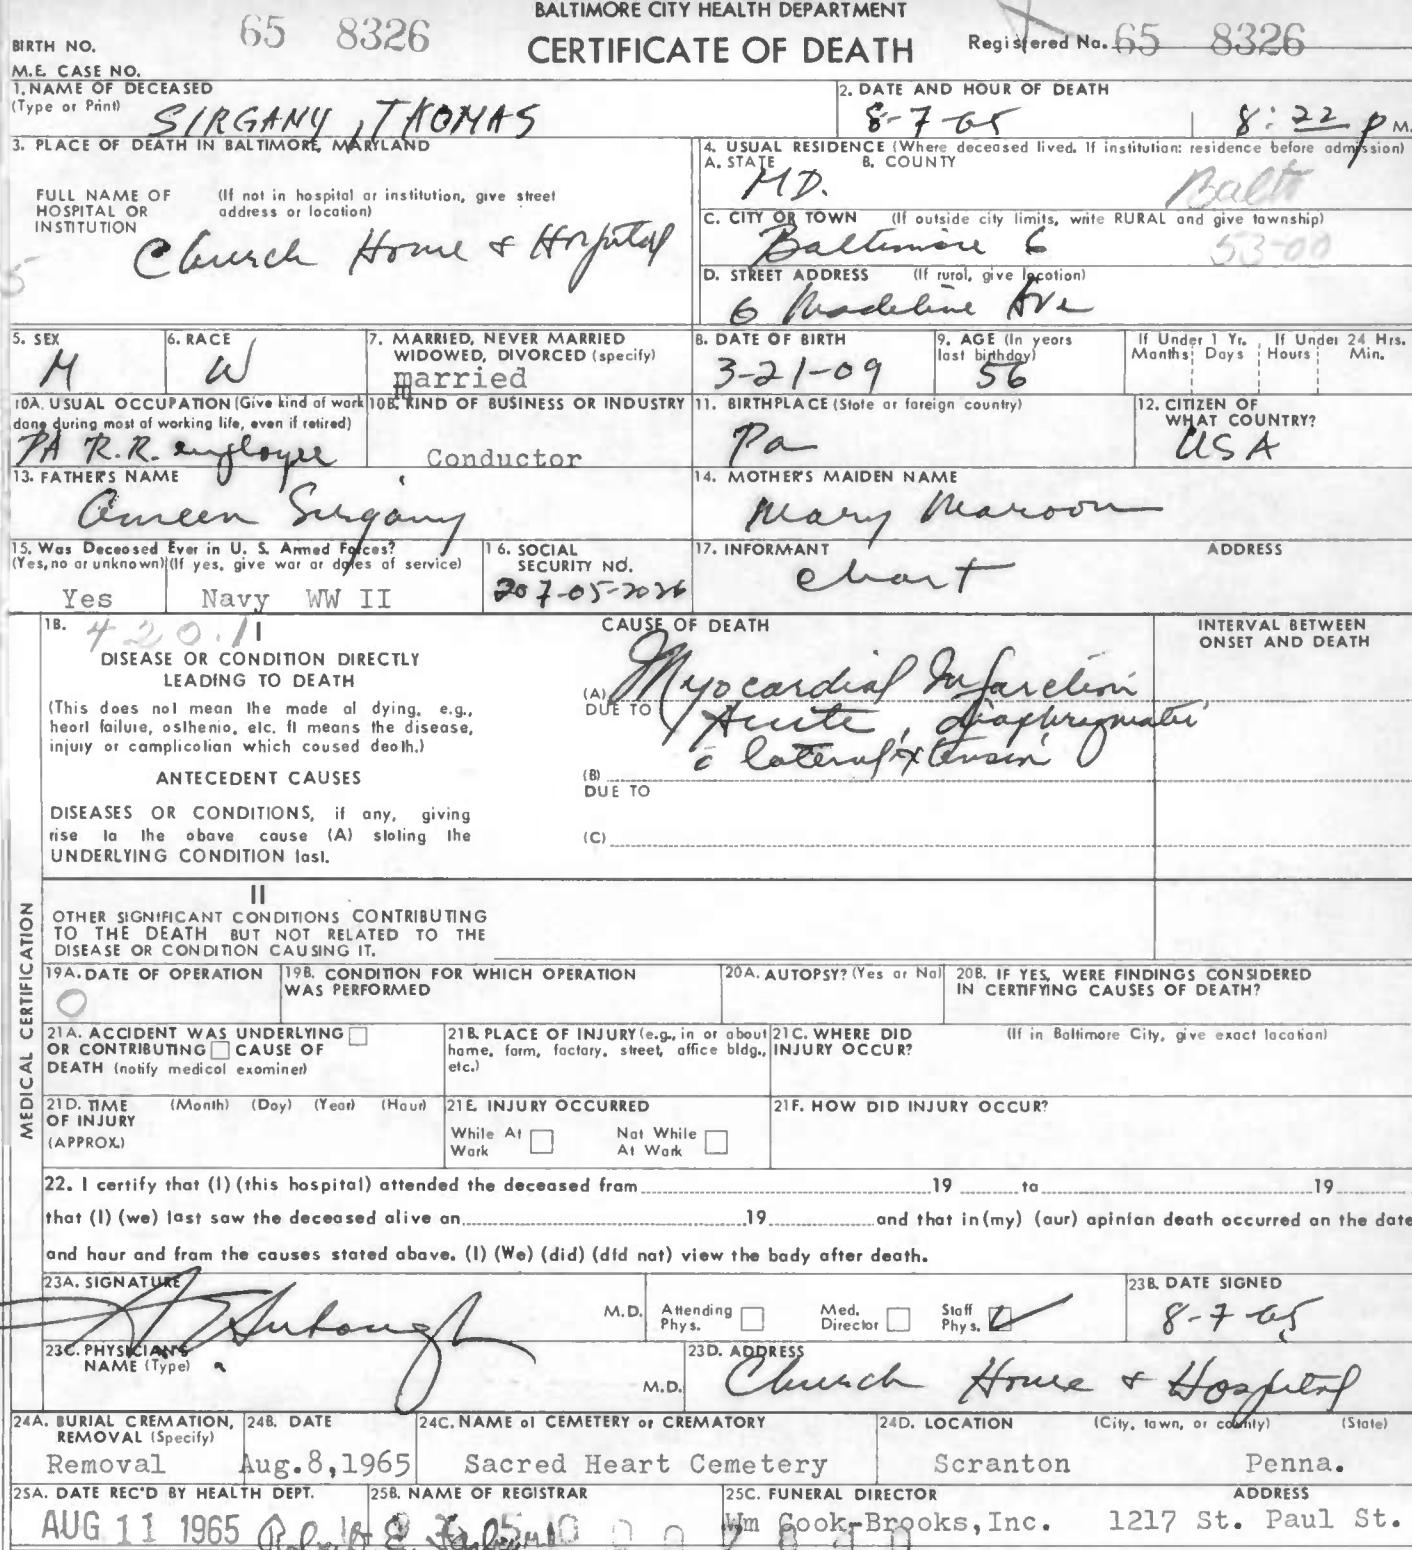 BALTIMORE CITY HEALTH DEPARTMENT
65 8326
CERTIFICATE OF DEATH
Registered No. 65 8326
BIRTH NO.
M.E. CASE NO.
1. NAME OF DECEASED
(Type or Print)
SIRGANY, THOMAS
2. DATE AND HOUR OF DEATH
8-7-65 8:22 P M.
3. PLACE OF DEATH IN BALTIMORE, MARYLAND
FULL NAME OF HOSPITAL OR INSTITUTION
(If not in hospital or institution, give street address or location)
Church Home & Hospital
4. USUAL RESIDENCE (Where deceased lived. If institution: residence before admission)
A. STATE B. COUNTY
MD. Balto
C. CITY OR TOWN (If outside city limits, write RURAL and give township)
Baltimore 6 53-00
D. STREET ADDRESS (If rural, give location)
6 Madeline Ave
5. SEX
M
6. RACE
W
7. MARRIED, NEVER MARRIED
WIDOWED, DIVORCED (specify)
married
8. DATE OF BIRTH
3-21-09
9. AGE (In years last birthday)
56
If Under 1 Yr. If Under 24 Hrs.
Months Days Hours Min.
10A. USUAL OCCUPATION (Give kind of work
done during most of working life, even if retired)
PA R.R. employee
10B. KIND OF BUSINESS OR INDUSTRY
Conductor
11. BIRTHPLACE (State or foreign country)
Pa
12. CITIZEN OF
WHAT COUNTRY?
USA
13. FATHER'S NAME
Ameen Sirgany
14. MOTHER'S MAIDEN NAME
Mary Maroon
15. Was Deceased Ever in U. S. Armed Forces?
(Yes, no or unknown) (If yes, give war or dates of service)
Yes Navy WW II
16. SOCIAL
SECURITY NO.
207-05-2026
17. INFORMANT ADDRESS
chart
18. 420.1
I
DISEASE OR CONDITION DIRECTLY
LEADING TO DEATH
(This does not mean the mode of dying, e.g.,
heart failure, asthenia, etc. It means the disease,
injury or complication which caused death.)
ANTECEDENT CAUSES
DISEASES OR CONDITIONS, if any, giving
rise to the above cause (A) stating the
UNDERLYING CONDITION last.
CAUSE OF DEATH
(A) Myocardial Infarction
DUE TO Acute, diaphragmatic
c̄ lateral extension
(B)
DUE TO
(C)
INTERVAL BETWEEN
ONSET AND DEATH
MEDICAL CERTIFICATION
II
OTHER SIGNIFICANT CONDITIONS CONTRIBUTING
TO THE DEATH BUT NOT RELATED TO THE
DISEASE OR CONDITION CAUSING IT.
19A. DATE OF OPERATION
0
19B. CONDITION FOR WHICH OPERATION
WAS PERFORMED
20A. AUTOPSY? (Yes or No)
20B. IF YES, WERE FINDINGS CONSIDERED
IN CERTIFYING CAUSES OF DEATH?
21A. ACCIDENT WAS UNDERLYING
OR CONTRIBUTING CAUSE OF
DEATH (notify medical examiner)
21B. PLACE OF INJURY (e.g., in or about
home, farm, factory, street, office bldg.,
etc.)
21C. WHERE DID (If in Baltimore City, give exact location)
INJURY OCCUR?
21D. TIME (Month) (Day) (Year) (Hour)
OF INJURY
(APPROX.)
21E. INJURY OCCURRED
While At Work Not While At Work
21F. HOW DID INJURY OCCUR?
22. I certify that (I) (this hospital) attended the deceased from 19 to 19
that (I) (we) last saw the deceased alive on 19 and that in (my) (our) opinion death occurred on the date
and hour and from the causes stated above. (I) (We) (did) (did not) view the body after death.
23A. SIGNATURE
M.D. Attending Phys. Med. Director Staff Phys.
23B. DATE SIGNED
8-7-65
23C. PHYSICIAN'S
NAME (Type)
M.D.
23D. ADDRESS
Church Home & Hospital
24A. BURIAL CREMATION,
REMOVAL (Specify)
Removal
24B. DATE
Aug.8,1965
24C. NAME of CEMETERY or CREMATORY
Sacred Heart Cemetery
24D. LOCATION (City, town, or county) (State)
Scranton Penna.
25A. DATE REC'D BY HEALTH DEPT.
AUG 11 1965
25B. NAME OF REGISTRAR
Robert E.
25C. FUNERAL DIRECTOR ADDRESS
Wm Cook-Brooks,Inc. 1217 St. Paul St.